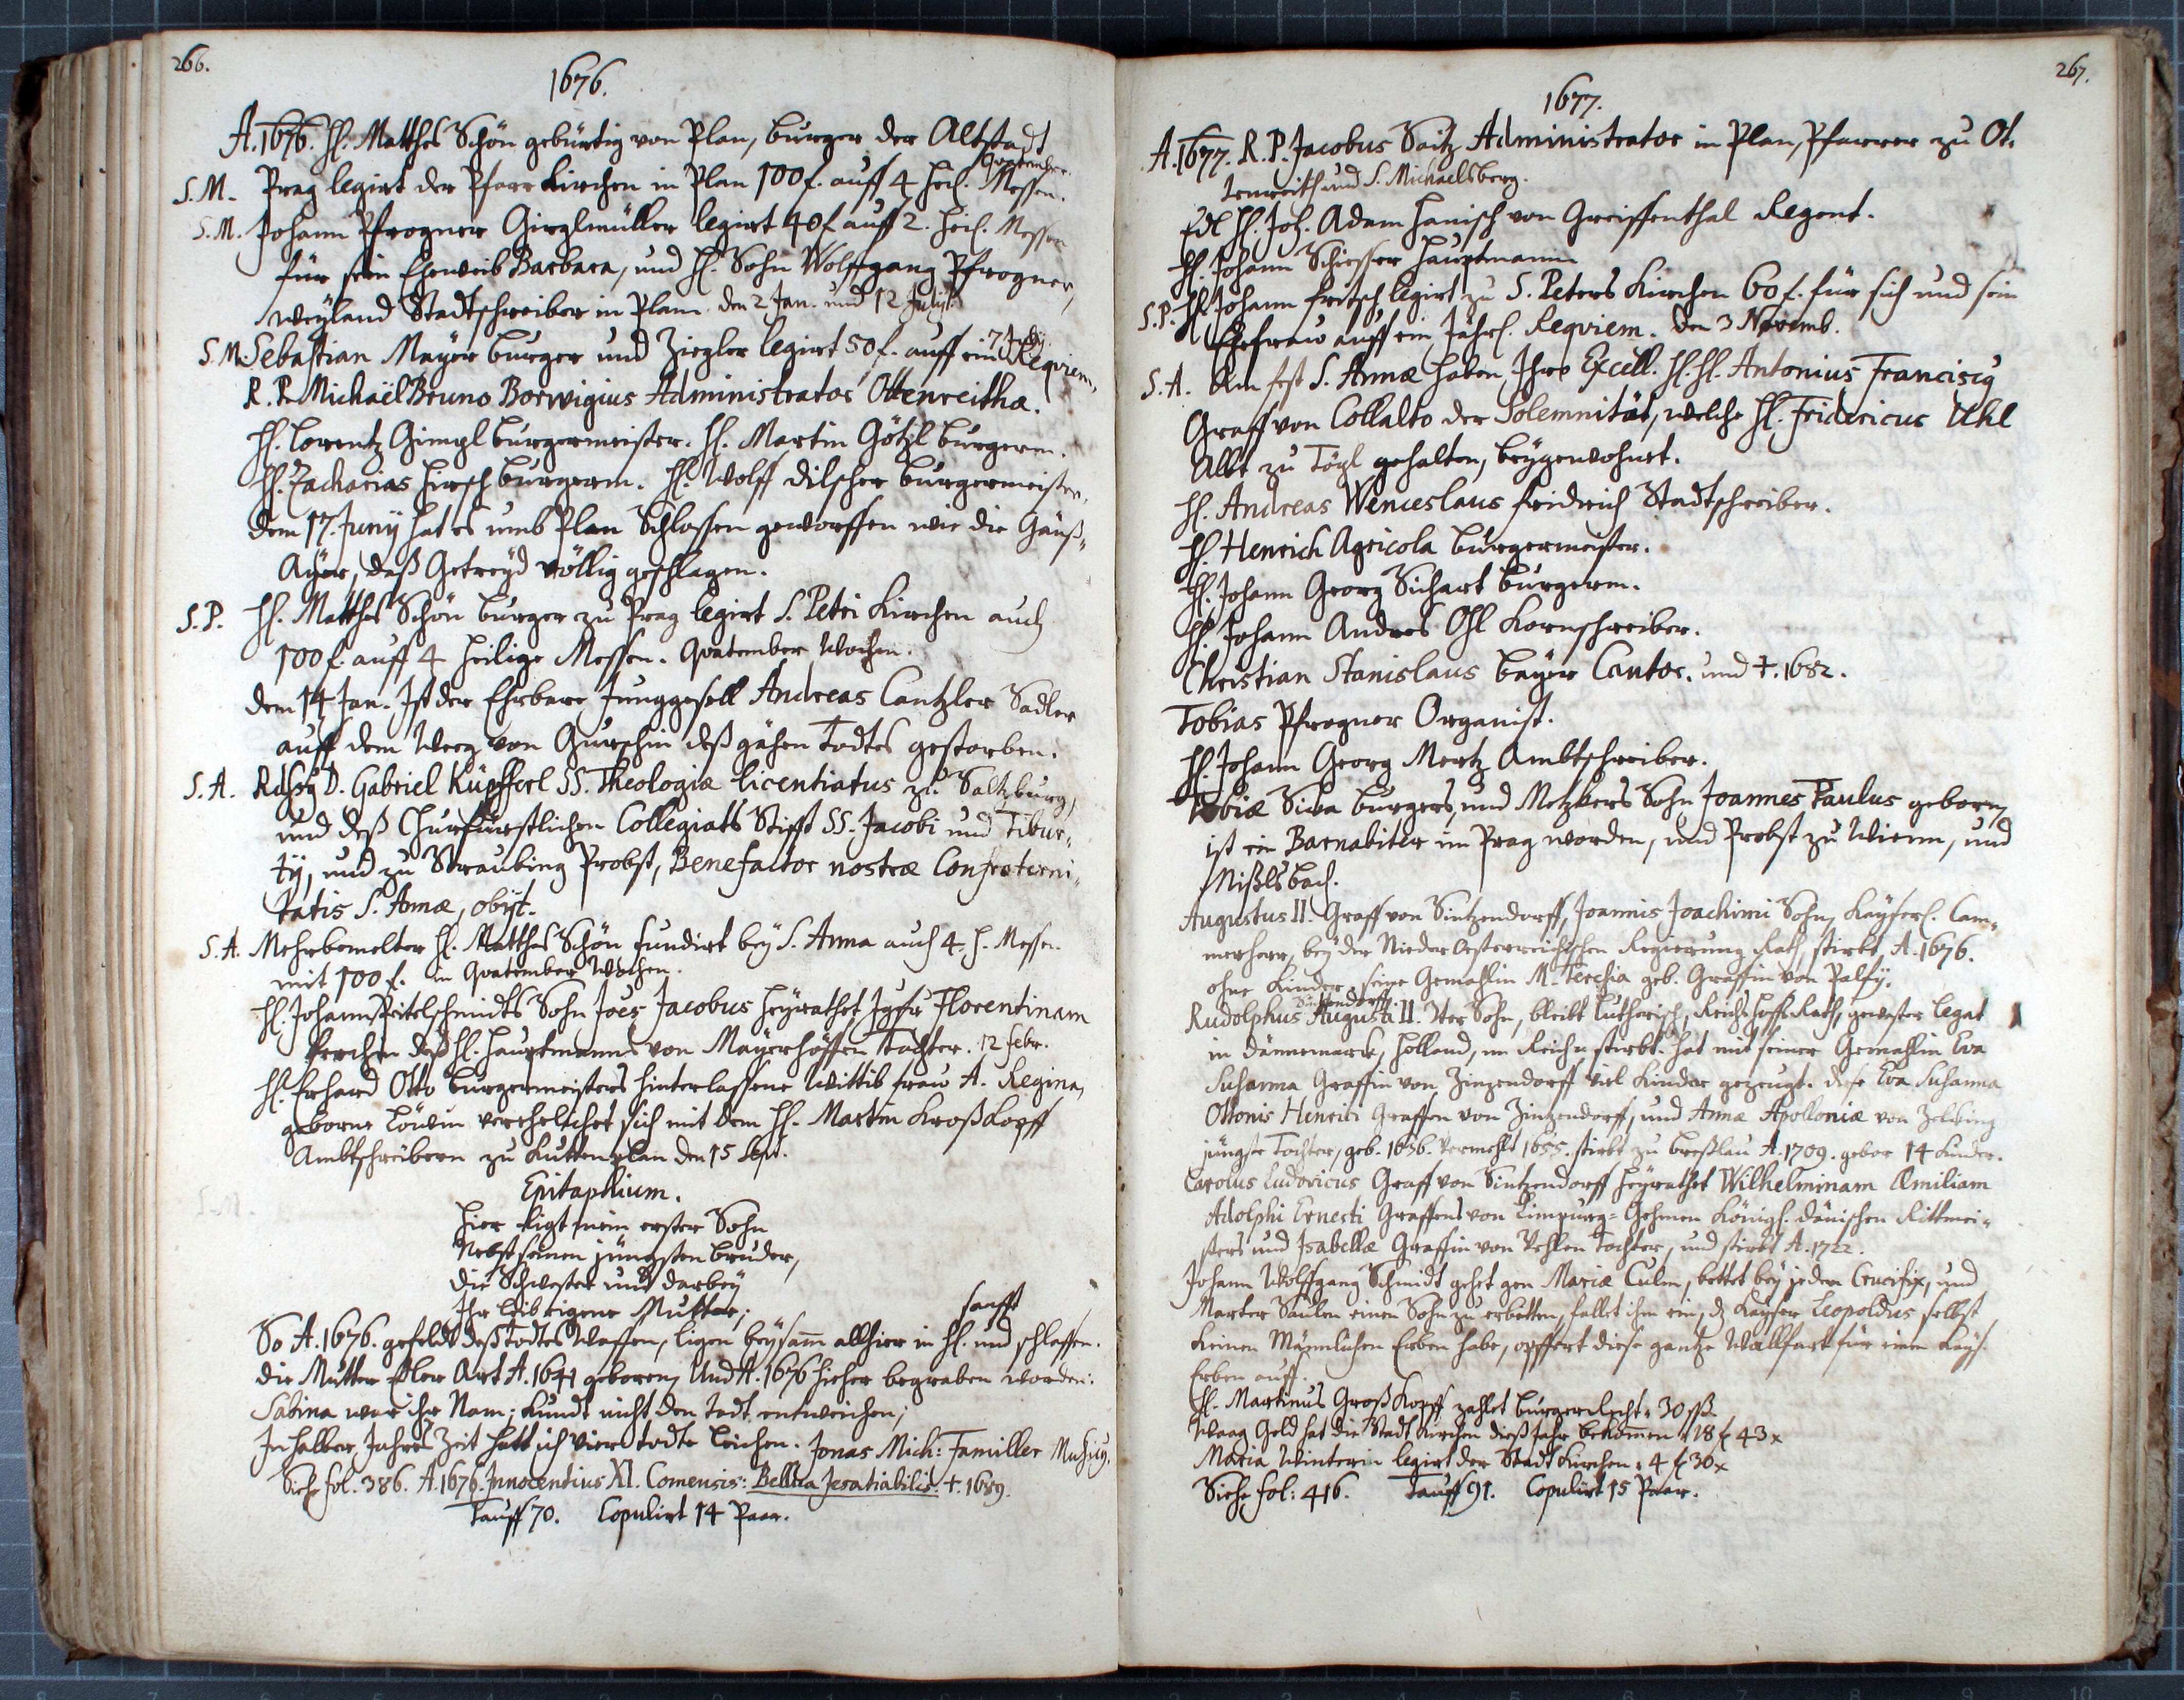 266.
1676.
A. 1676. H. Matthes Schön gebürtig von Plan, burger der Altstadt
Quatember.
S. M. Prag legirt der Pfarr Kirchen in Plan 100 f. auff 4 heil. Messen.
S. M. Johann Pfrogner Girglmüller legirt 40 f auff 2. heil. Messen
für sein Eheweib Barbara, und H. Sohn Wolffgang Pfrogner,
weyland Stadtschreiber in Plan. den 2 Jan. und 12 Julij.
7 July.
S. M. Sebastian Mayer burger und Ziegler legirt 50 f. auff ein Reqviem,
R. P. Michaël Bruno Borwigius Administrator Ottenreithæ.
H. Lorentz Gimpl burgermeister. H. Martin Götzl burgerm.
H. Zacharias Hirsch burgerm. H. Wolff Dilscher burgermeister.
dem 17. Junij hat es umb Plan Schlossen geworffen wie die Gänß-
Ayer, daß Getreyd völlig geschlagen.
S. P. H. Matthes Schön burger zu Prag legirt S. Petri Kirchen auch
100 f. auff 4 heilige Messen. Quatember Wochen.
dem 14 Jan. Ist der Ehrbare Junggesell Andreas Cantzler Sadler
auff dem Weeg von deß gähen Todtes gestorben.
S. A. D. Gabriel Küpfferl SS. Theologiæ licentiatus zu Saltzburg,
und deß Churfürstlichen Collegiats Stifft SS. Jacobi und Tibur-
tij, und zu Straubing Probst, Benefactor nostræ Confraterni-
tatis S. Annæ, obijt.
S. A. Mehrbemelter H. Matthes Schön fundirt bey S. Anna auch 4. h. Messen
mit 100 f. in Quatember Wochen.
H. Johann Peitelschmidts Sohn Joes Jacobus heyrathet Jgfr Florentinam
deß H. Hauptmanns von Mayerhöffen Tochter. 12 Febr.
H. Erhard Otto burgermeisters hinterlassene Wittib fraw A. Regina,
geborne Löwin verehelichet sich mit dem H. Martin Kroßkopff
Ambtschreibern zu Kuttenplan den 15 Sept.
Epitaphium.
Hier ligt mein erster Sohn
Nebst seinem jüngsten bruder,
die Schwester und darbey
Ihr leib eigene Mutter;
sanfft
So A. 1676. gefeldt deß Todtes Waffen, ligen beysam allhier in H. und schlaffen.
die Mutter Edler Art A. 1641 geboren, Und A. 1676 hieher begraben worden.
Sabina war ihr Nam; kundt nicht den Todt entweichen;
In halber Jahres Zeit hatt ich vier todte Leichen. Jonas Mich: Familler
Siehe fol. 386. A. 1676. Innocentius XI. Comensis: Bellua Insatiabilis. †. 1689.
Tauff 70. Copulirt 14 Paar.
267.
1677.
A. 1677. R. P. Jacobus Saitz Administrator in Plan, Pfarrer zu Ot-
tenreith und S. Michaelsberg.
Edl H. Joh. Adam Hanisch von Greiffenthal Regent.
H. Johann Schiesser Hauptmann
S. P. H. Johann Fritsch legirt zu S. Peters Kirchen 60 f. für sich und sein
Ehefraw auff ein Jährl. Reqviem. den 3 Novemb.
S. A. Am fest S. Annæ haben Ihro Excell. H. H. Antonius Franciscq
Graff von Collalto der Solemnität, welche H. Fridericus Uhl
Abbt zu Töpl gehalten, beygewohnet.
H. Andreas Wenceslaus Fridrich Stadtschreiber.
H. Henrich Agricola burgermeister.
H. Johann Georg Sichart burgerm.
H. Johann Andres Ohl Kornschreiber.
Christian Stanislaus Bayer Cantor. und †. 1682.
Tobias Pfrogner Organist.
H. Johann Georg Mertz Ambtschreiber.
Tobiæ Burgers, und Metzkers Sohn Joannes Paulus geboren,
ist ein Barnabiter in Prag worden, und Probst zu Wienn, und
Mißlsbach.
Augustus II. Graff von Sintzendorff, Joannis Joachimi Sohn, Kayserl. Cam-
merherr, bey der Nieder Oesterreichischen Regierung Rath, stirbt A. 1676.
ohne Kinder. seine Gemahlin M. Teresia geb. Graffin von Palfy.
Sintzendorff.
Rudolphus Augusti II. 3ter Sohn, bleibt Lutherisch, Reichs Hoff Rath, gewester Legat
in Dännemarck, Holland, im Reich stirbt. hat mit seiner Gemahlin Eva
Susanna Graffin von Zinzendorff viel Kinder gezeugt. diese Eva Susanna
Ottonis Henrici Graffen von Zinzendorff, und Annæ Apolloniæ von Zelking
jüngste Tochter, geb. 1636. vermehlt 1655. stirbt zu Breßlau A. 1709. gebar 14 Kinder.
Carolus Ludovicus Graff von Sintzendorff heyrathet Wilhelminam Æmiliam
Adolphi Ernesti Graffens von Limpurg-Gehmen Königl. dänischen Rittmei-
sters und Isabellæ Graffin von Vehlen Tochter, und stirbt A. 1722.
Johann Wolffgang Schmidt gehet gen Mariæ Culm, bettet bey jedem Crucifix, und
Marter Saulen einen Sohn zu erbetten, fallet ihm ein, dz Kayser Leopoldus selbst
keinen Männlichen Erben habe, opffert diese gantze Wallfart für einen Kays.
Erben auff.
H. Martinus Großkopff zahlet burger Recht, 30 ß
Waag Geld hat die Stadt Kirchen dieß Jahr bekommen 18 f 43 x
Maria Winterin legirt der Stadt Kirchen, 4 f 30 x
Siehe fol: 416. Tauff 91. Copulirt 15 Paar.